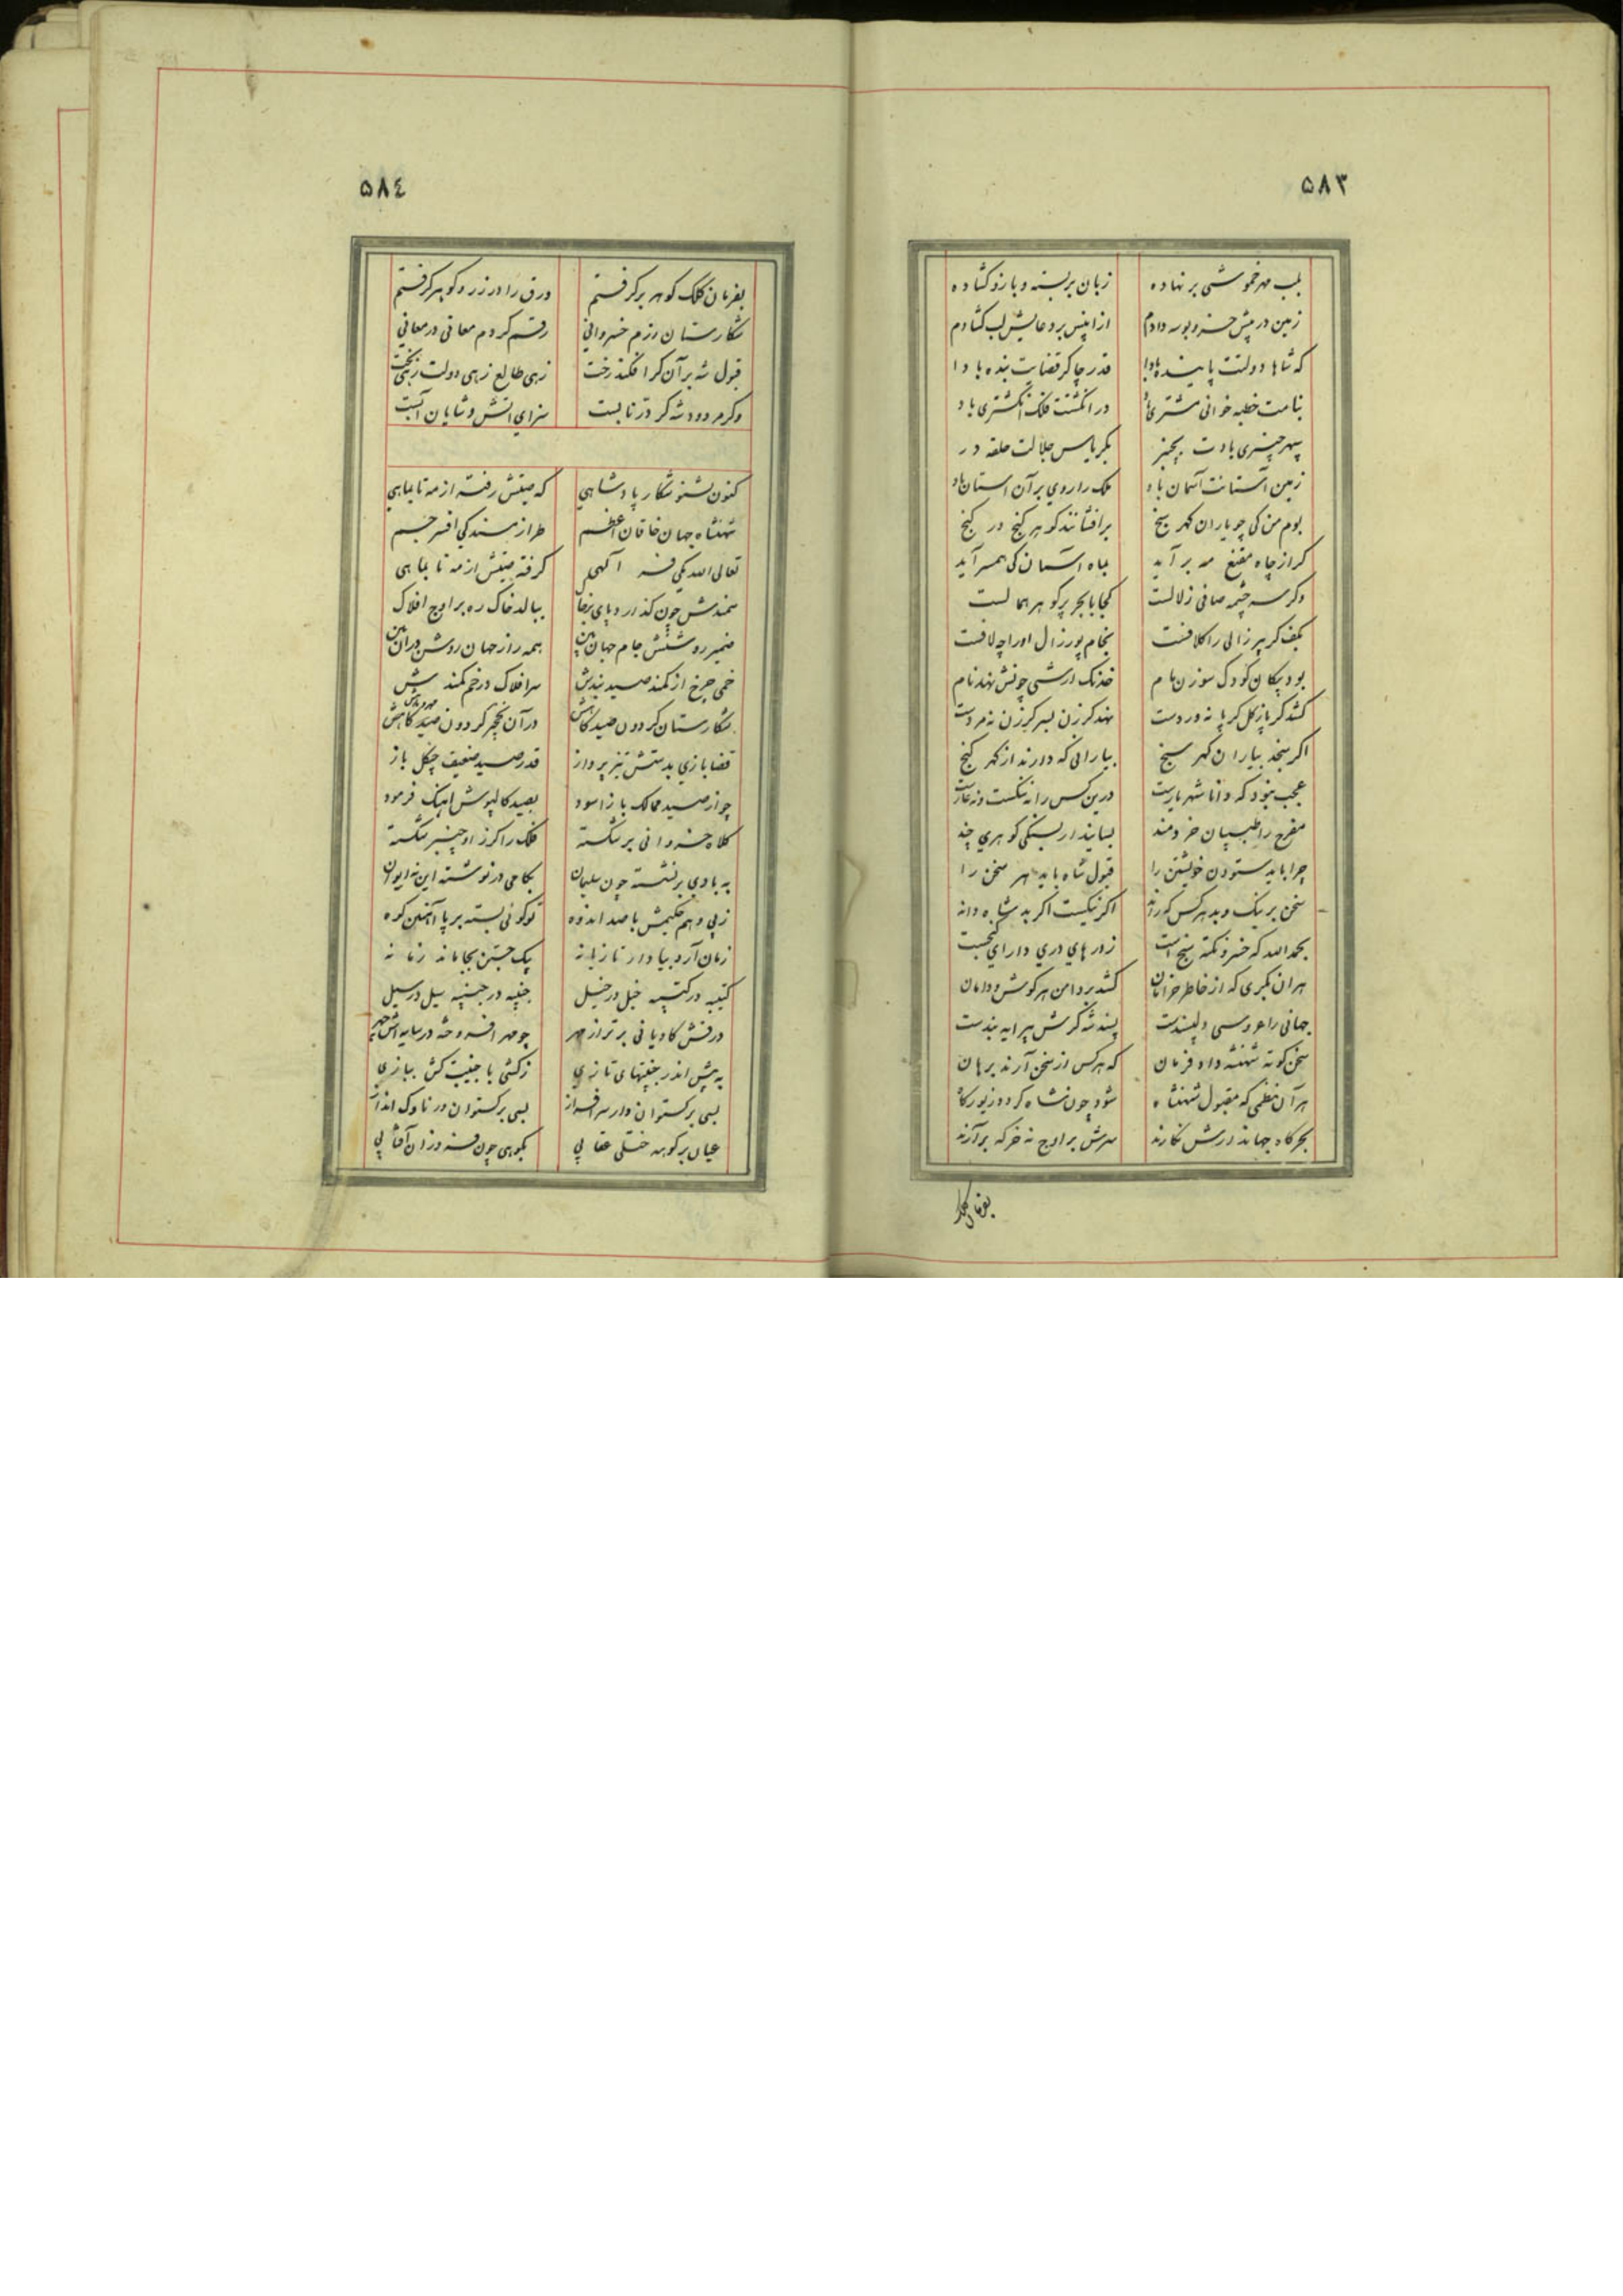 ۵۸۳
بلب مهر خموشی بر نهاده زبان بر بسته و بازو کشاده
زمین در پیش خسرو بوسه دادم از آنپس بر دعایش لب کشادم
که شاها دولتت پاینده بادا قدر چاکر قضایت بنده بادا
بنامت خطبه خوانی مشتری باد در انکشتت فلک انکشتری باد
سپهر چنبری بادت بچنبر بکریاس جلالت حلقه در
زمین آستانت آسمان باد ملک را روی بر آن آستان باد
بوم من کی چو یاران کهر سنج برافشانند کوهر کنج در کنج
کر از چاه مقنع مه برآید بماه آسمان کی همسر آید
وکر سرچشمه صافی زلالست کجا با بحر پر کوهر همالست
بکف کر پیر زالی را کلافست بخام پور زال او را چه لافست
بود پیکان کودک سوزن مام خدنک ارشی چونش نهد نام
کشد کر پا ز کل کر پا نه وردست نهد کرزن بسر کرزن نه مردست
اکر سنجد بیاران کهر سنج بیارانی که دارند از کهر کنج
عجب نبود که دانا شهریارست درین کس را نه ننکست و نه عارست
مفرح را طبیبان خردمند بسایند ار بسنکی کوهری چند
چرا باید ستودن خویشتن را قبول شاه باید مهر سخن را
سخن بر نیک و بد هر کس که راند اکر نیکست اکر بد شاه داند
بحمدالله که خسرو نکته سنج است ز در های دری دارای کنجست
هر آن بکری که از خاطر خرامان کشد بر دامن هر کوش دامان
جهانی را عروسی دلپسندست پسند شه کرش پیرایه بندست
سخن کوته شهنشه داد فرمان که هر کس از سخن آرند برهان
هر آن نظمی که مقبول شهنشاه شود چون شاه کردد زیور کاه
بحرکاه جهاندارش نکارند سرش بر اوج نه خرکه برآرند
بفرمان کلک
۵۸٤
بفرمان کلک کوهر برکرفتم ورق را در زر و کوهر کرفتم
شکارستان رزم خسروانی رقم کردم معانی در معانی
قبول شه بر آن کر افکند رخت زهی طالع زهی دولت زهی بخت
وکر مردود شه کردد تابست سزای آتش و شایان آبست
کنون بشنو شکار پادشاهی که صیتش رفته از مه تا بماهی
شهنشاه جهان خاقان اعظم طراز مسند کی افسر جم
تعالی الله یکی فر آلهی کرفته صیتش از مه تا بماهی
سمندش چون کذارد پای بر خاک ببالد خاک ره بر اوج افلاک
ضمیر روشنش جام جهان بین همه راز جهان روشن در آن بین
خمی چرخ از کمند صید بندش سر افلاک در خم کمندش
شکارستان کردون صیدکاهش در آن نخچیر کردون صید کاهش
قضا بازی بدستش تیز پرواز قدر صید ضعیف چنکل باز
چو از صید ممالک باز آسود بصید کالپوش آهنک فرمود
کلاه خسروانی بر شکسته فلک را کرز او چنبر شکسته
به بادی بر نشسته چون سلیمان بکامی در نوشته این نه ایوان
ز پی وهم حکیمش با صد اندوه تو کوئی بسته بر پا آهنین کوه
زمان آرد بیاد ار تازیانه بیک جستن بجا ماند زمانه
کتیبه در کتیبه خیل در خیل جنیبه در جنیبه سیل در سیل
درفش کاویانی برتر از مهر چو مهر افروخته در سایه اش چهر
به پیش اندر جنیبتهای تازی ز کشتی با جنیبت کش ببازی
بسی برکستوان دار سرافراز بسی برکستوان در ناوک انداز
عیان بر کوهه ختلی عقابی بکوهی چون فروزان آفتابی